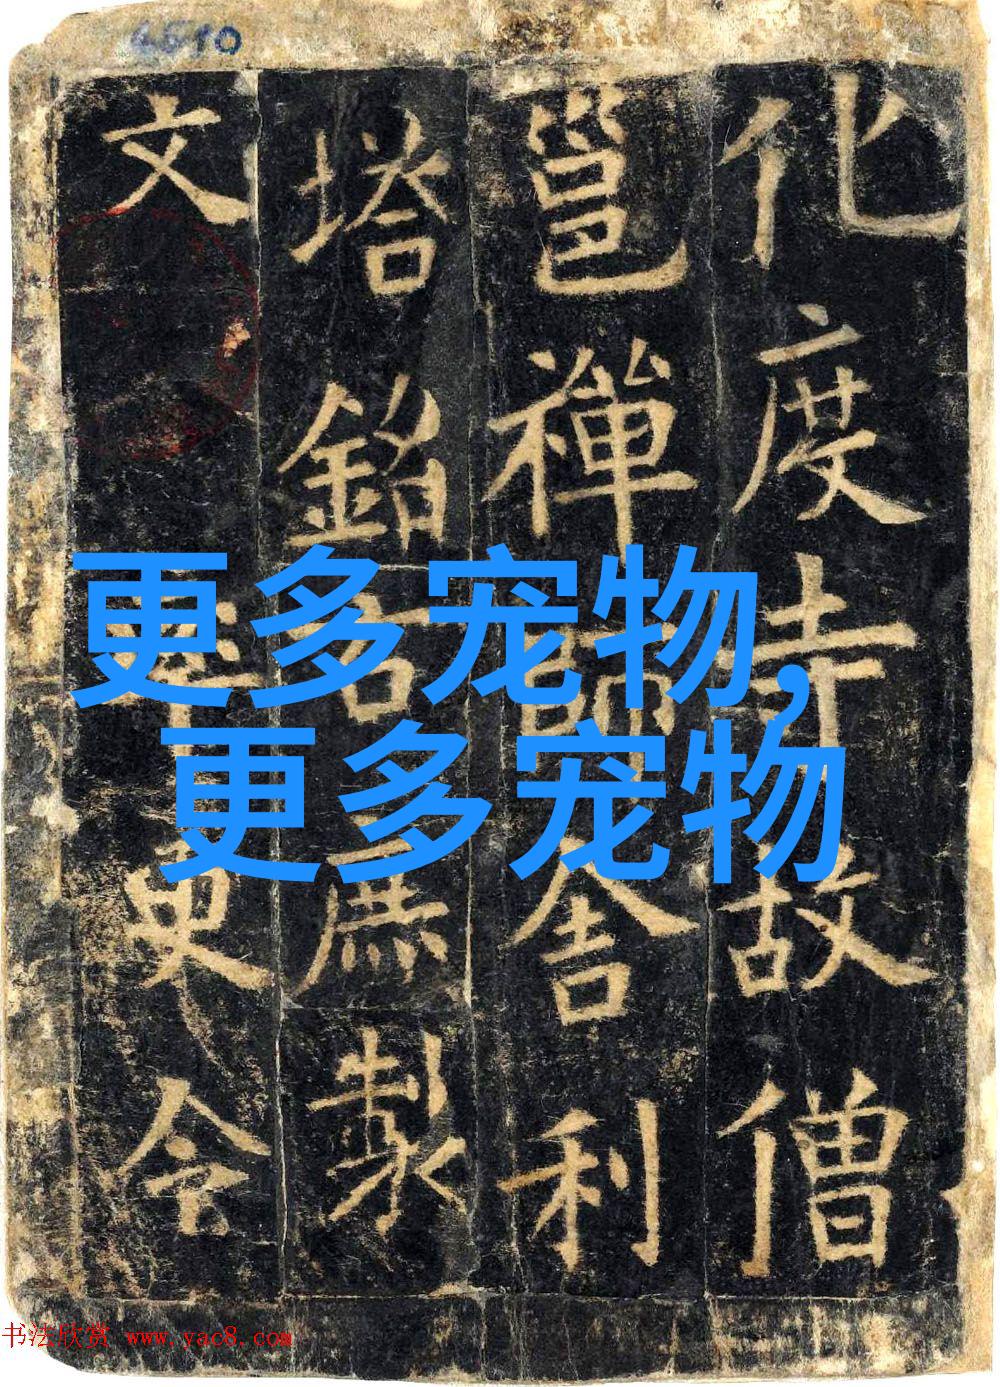 化度寺故僧
邕禪師舍利
塔銘右庶製
文 率更令
更多宠物,
更多宠物
书法欣赏 www.yac8.com